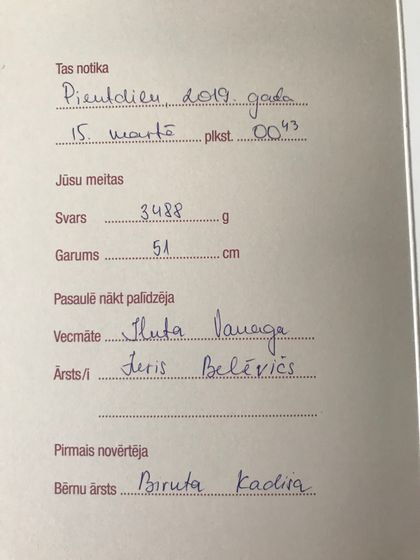 Tas notika
Piektdien, 2019. gada
15. martā plkst. 00⁴³
Jūsu meitas
Svars 3488 g
Garums 51 cm
Pasaulē nākt palīdzēja
Vecmāte Iluta Vanaga
Ārsts/i Juris Belēvičs
Pirmais novērtēja
Bērnu ārsts Biruta Kadiķa